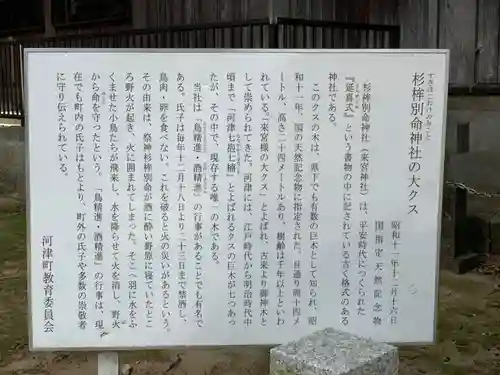 すぎほこわけのみこと
杉桙別命神社の大クス
昭和十一年十二月十六日
国指定天然記念物
杉桙別命神社（来宮神社）は、平安時代につくられた
『延喜式』という書物の中に記されている古く格式のある
神社である。
このクスの木は、県下でも有数の巨木として知られ、昭
和十一年、国の天然記念物に指定された。目通り周十四メ
ートル、高さ二十四メートルあり、樹齢は千年以上といわ
れている。「来宮様の大クス」とよばれ、古来より御神木と
して崇められてきた。河津には、江戸時代から明治時代中
頃まで「河津七抱七楠」とよばれるクスの巨木が七つあっ
たが、その中で、現存する唯一の木である。
当社は「鳥精進・酒精進」の行事があることでも有名で
ある。氏子は毎年十二月十八日より二十三日まで禁酒し、
鳥肉・卵を食べない。これを破ると火の災いがあるという。
その由来は、祭神杉桙別命が酒に酔い野原に寝ていたとこ
ろ野火が起き、火に囲まれてしまった。そこへ羽に水をふ
くませた小鳥たちが飛来し、水を降らせて火を消し、野火
から命を守ったという。「鳥精進・酒精進」の行事は、現
在でも町内の氏子はもとより、町外の氏子や多数の崇敬者
に守り伝えられている。
河津町教育委員会